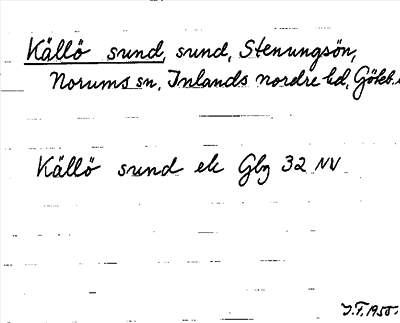 Källö sund, sund, Stenungsön,
Norums sn, Inlands nordre hd, Göteb.
Källö sund ek Gbg 32 NV
J.F. 1950.